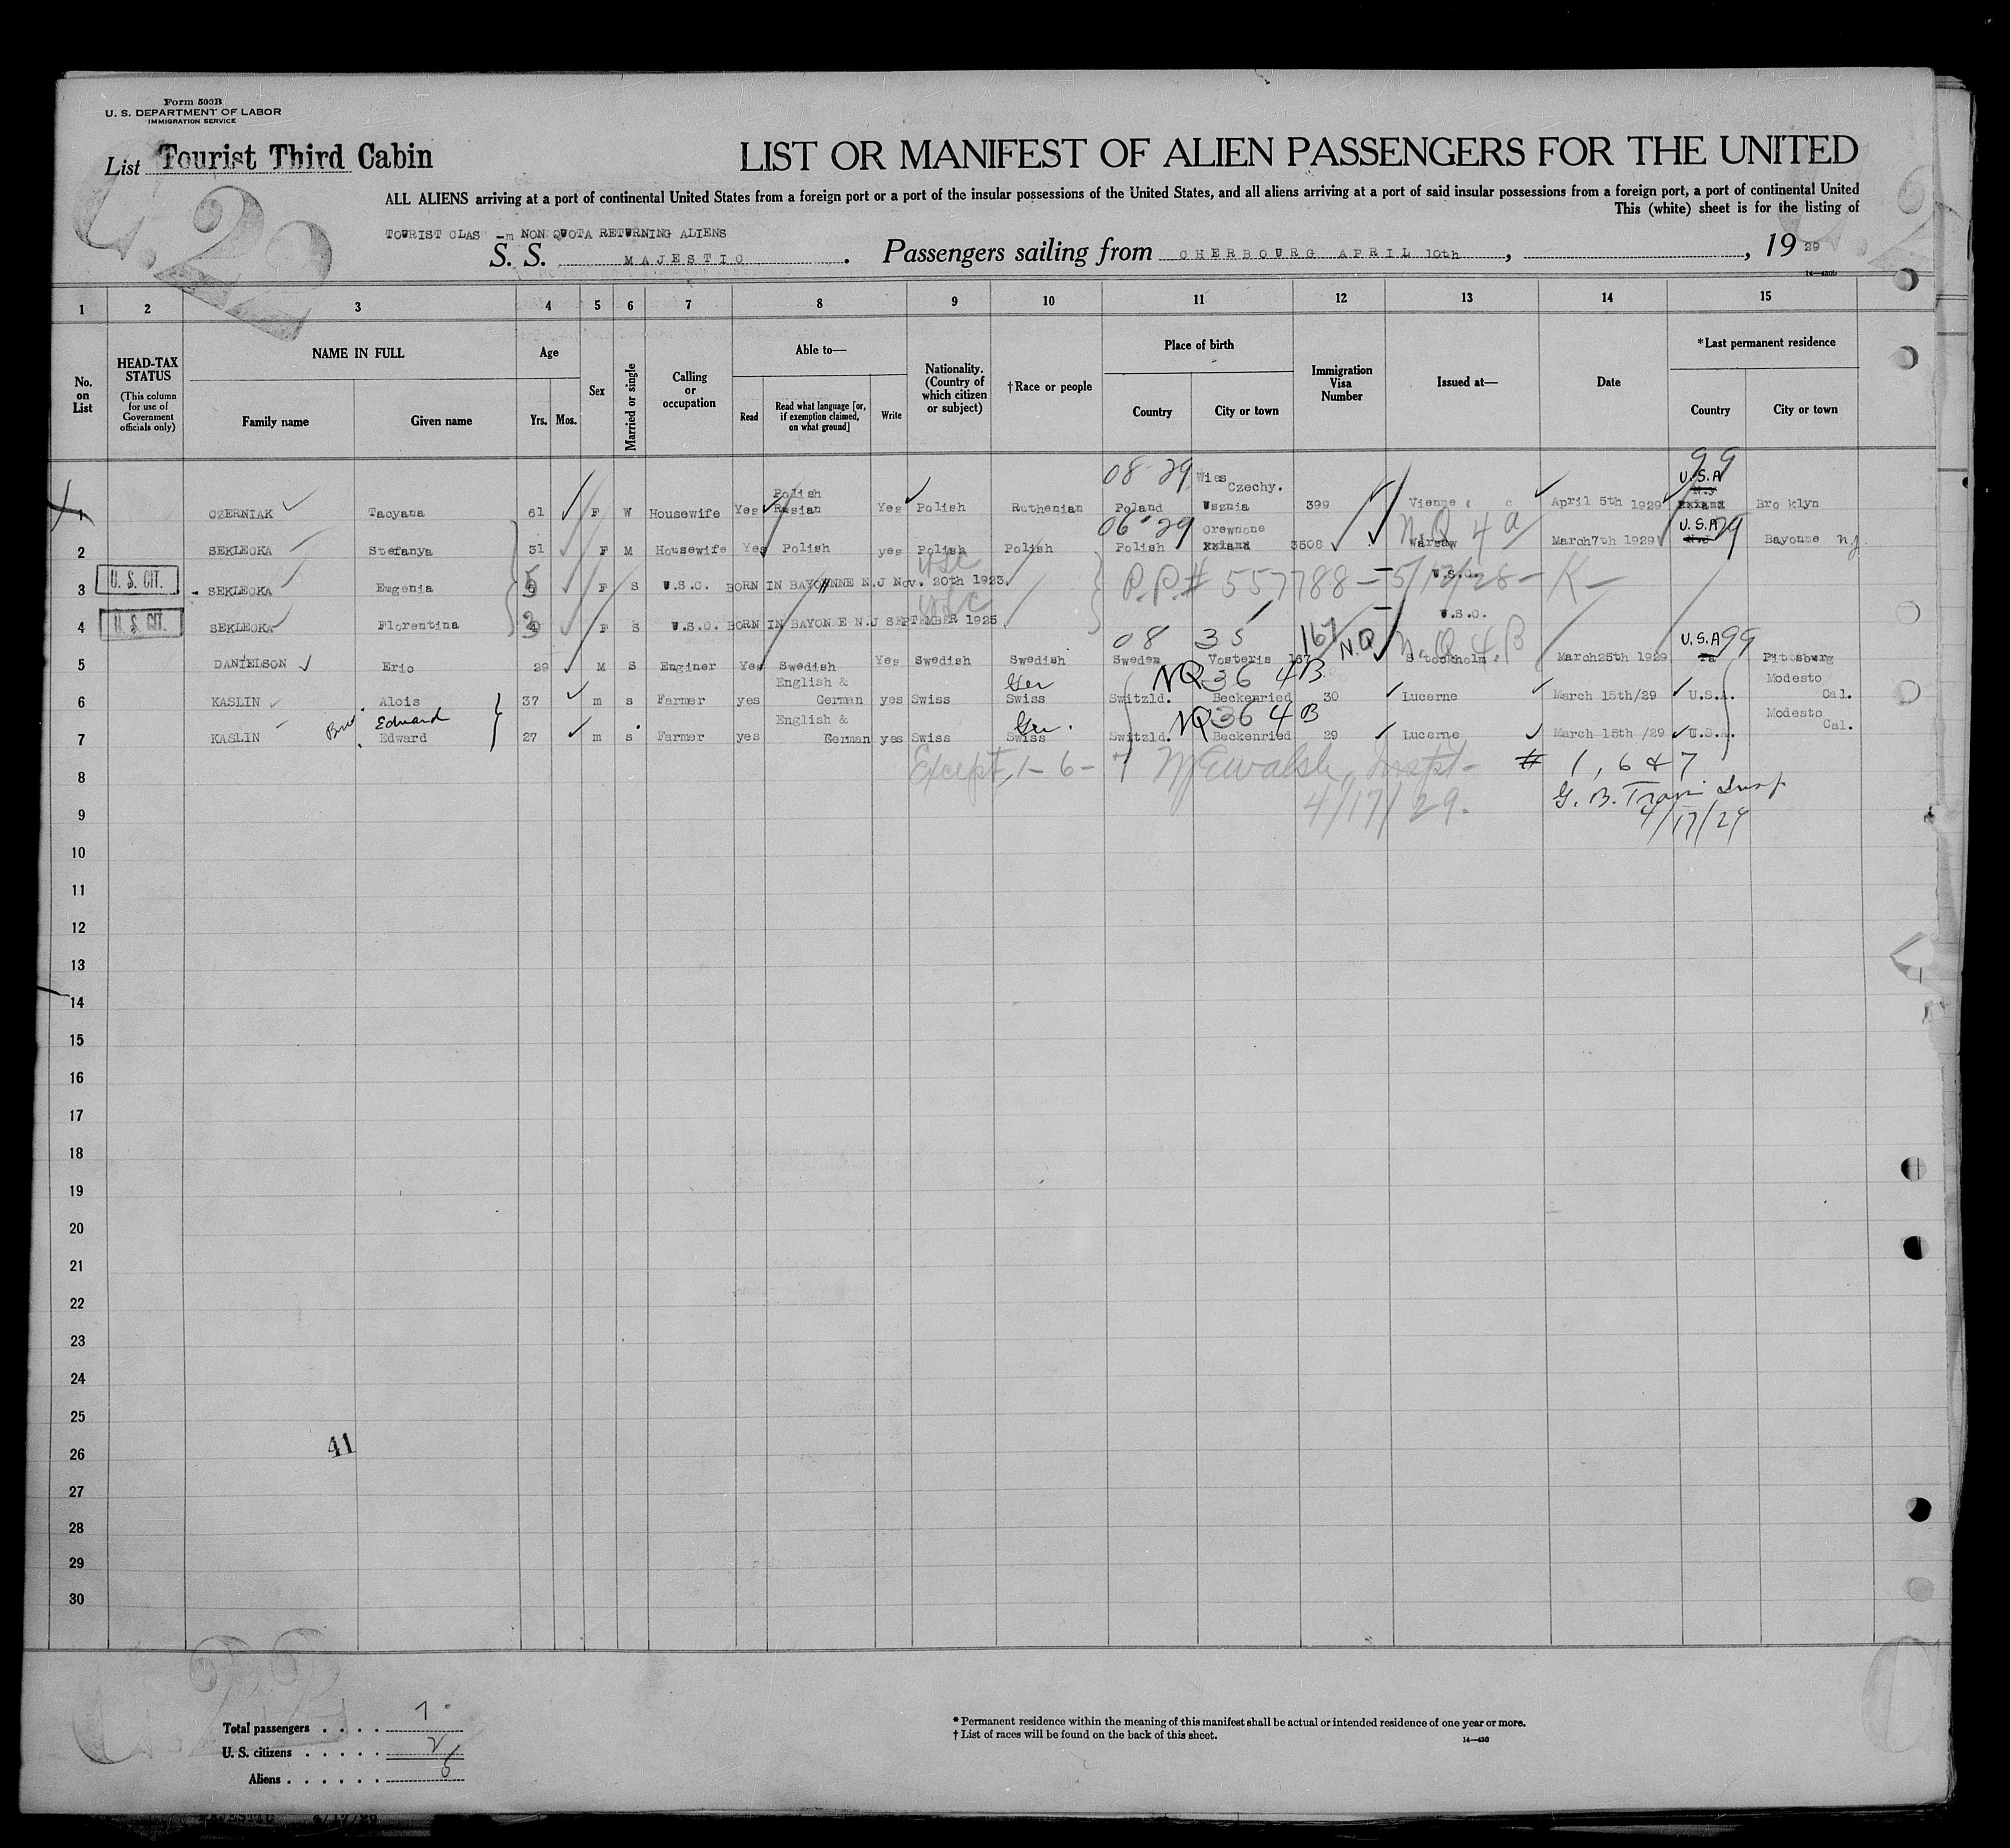 Form 500B
U. S. DEPARTMENT OF LABOR
IMMIGRATION SERVICE
List Tourist Third Cabin
LIST OR MANIFEST OF ALIEN PASSENGERS FOR THE UNITED
ALL ALIENS arriving at a port of continental United States from a foreign port or a port of the insular possessions of the United States, and all aliens arriving at a port of said insular possessions from a foreign port, a port of continental United
This (white) sheet is for the listing of
TOURIST CLAS -m NON QUOTA RETURNING ALIENS
S. S. MAJESTIC . Passengers sailing from CHERBOURG APRIL 10th , , 19 29
1 2 3 4 5 6 7 8 9 10 11 12 13 14 15
No. on List
HEAD-TAX STATUS (This column for use of Government officials only)
NAME IN FULL
Family name Given name
Age
Yrs. Mos.
Sex
Married or single
Calling or occupation
Able to—
Read
Read what language [or, if exemption claimed, on what ground]
Write
Nationality. (Country of which citizen or subject)
† Race or people
Place of birth
Country City or town
Immigration Visa Number
Issued at—
Date
* Last permanent residence
Country City or town
08 29 Wies Czechy. 99
Polish U.S.A
1 CZERNIAK Tacyana 61 F W Housewife Yes Rusian Yes Polish Ruthenian Poland Usznia 399 Vienne April 5th 1929 Brooklyn
06 29 Grewnone N.Q 4a U.S.A 99
2 SEKLECKA Stefanya 31 F M Housewife Yes Polish yes Polish Polish Polish 3508 Warsaw March7th 1929 N.J Bayonne nj
USC
3 U. S. CIT. SEKLECKA Eugenia 5 F S U.S.C. BORN IN BAYONNE N.J Nov. 20th 1923. P.P.# 557788 - 5/12/28 - K - U.S.C.
USC
4 U. S. CIT. SEKLECKA Florentina 3 F S U.S.C. BORN IN BAYONNE N.J SEPTEMBER 1925 U.S.C.
08 35 167 N.Q N.Q 4B U.S.A 99
5 DANIELSON Eric 29 M S Enginer Yes Swedish Yes Swedish Swedish Sweden Vosteris 167 Stockholm March25th 1929 Pa Pittsburg
English & Ger NQ 36 4B Modesto
6 KASLIN Alois 37 m s Farmer yes German yes Swiss Swiss Switzld. Beckenried 30 Lucerne March 15th/29 U.S.A. Cal.
Edward English & Ger. NQ 36 4B Modesto
7 KASLIN Edward 27 m s Farmer yes German yes Swiss Swiss Switzld. Beckenried 29 Lucerne March 15th /29 U.S.A. Cal.
8 Except 1-6-7 Walsh, Inspt- # 1, 6 & 7
G. B. Insp
9 4/17/29. 4/17/29
10
11
12
13
14
15
16
17
18
19
20
21
22
23
24
25
26 41
27
28
29
30
Total passengers . . . . 7
U. S. citizens . . . . . 2
Aliens . . . . . . 5
* Permanent residence within the meaning of this manifest shall be actual or intended residence of one year or more.
† List of races will be found on the back of this sheet.
14—430
MAJESTIC 4/17/29